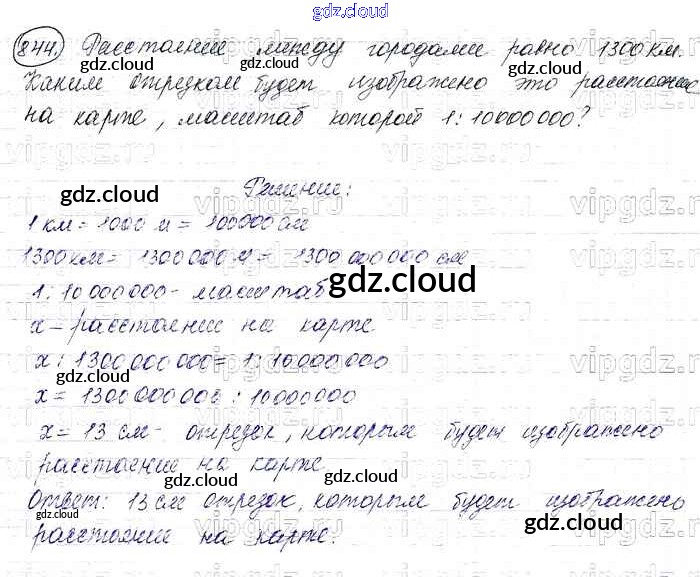 gdz.cloud
844. Расстояние между городами равно 1300 км.
gdz.cloud gdz.cloud
Каким отрезком будет изображено это расстояние
на карте, масштаб которой 1:10000000?
vipgdz.ru
gdz.cloud gdz.cloud
Решение:
1 км = 1000 м = 100000 см
gdz.cloud
1300 км = 1300000 м = 1300 000 000 см
gdz.cloud
1:10 000000 - масштаб
x - расстояние на карте.
x : 1300 000 000 = 1:10000000
gdz.cloud gdz.cloud
x = 1300 000 000 : 10000000
x = 13 см - отрезок, которым будет изображено
gdz.cloud
расстояние на карте.
Ответ: 13 см отрезок, которым будет изображено
gdz.cloud gdz.cloud gdz.cloud
расстояние на карте.